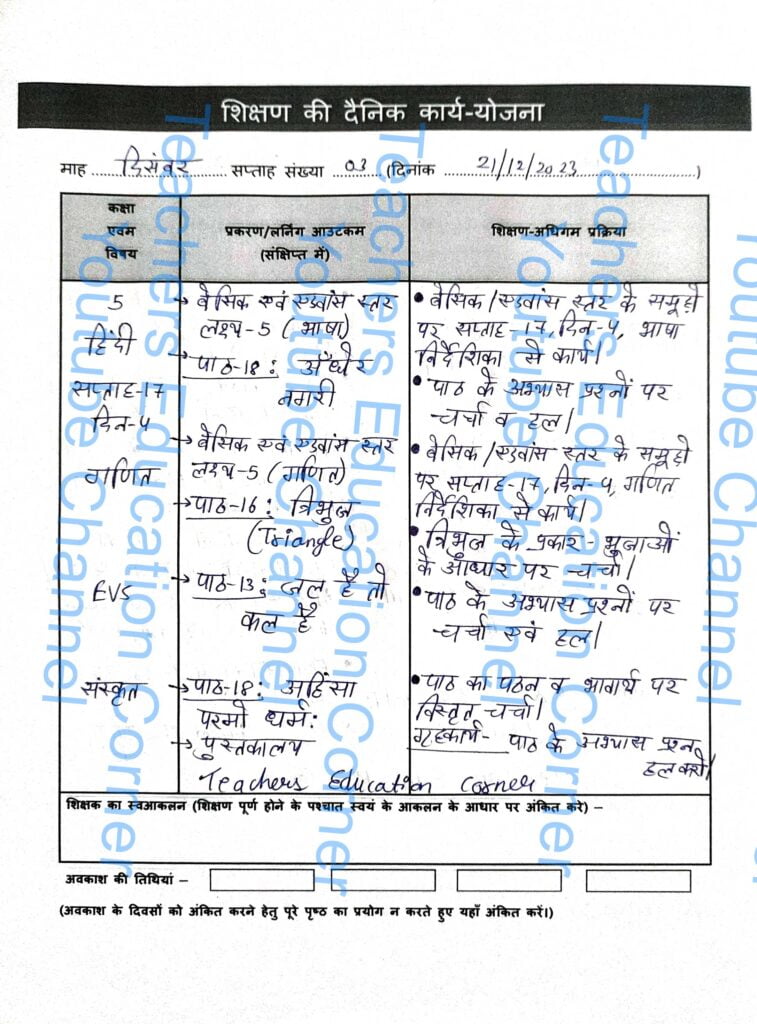 शिक्षण की दैनिक कार्य-योजना
माह ..... दिसंबर ..... सप्ताह संख्या ..... 03 ..... (दिनांक ..... 21/12/2023 .....)
कक्षा
एवम
विषय
प्रकरण/लर्निंग आउटकम
(संक्षिप्त में)
शिक्षण-अधिगम प्रक्रिया
5
हिंदी
सप्ताह-17
दिन-4
→ बेसिक एवं एडवांस स्तर
लक्ष्य-5 (भाषा)
→ पाठ-18: अँधेर
नगरी
• बेसिक/एडवांस स्तर के समूहों
पर सप्ताह-17, दिन-4, भाषा
निर्देशिका से कार्य।
• पाठ के अभ्यास प्रश्नों पर
चर्चा व हल।
गणित
→ बेसिक एवं एडवांस स्तर
लक्ष्य-5 (गणित)
→ पाठ-16: त्रिभुज
(Triangle)
• बेसिक/एडवांस स्तर के समूहों
पर सप्ताह-17, दिन-4, गणित
निर्देशिका से कार्य।
• त्रिभुज के प्रकार - भुजाओं
के आधार पर चर्चा।
EVS
→ पाठ-13: जल है तो
कल है
• पाठ के अभ्यास प्रश्नों पर
चर्चा एवं हल।
संस्कृत
→ पाठ-18: अहिंसा
परमो धर्म:
→ पुस्तकालय
• पाठ का पठन व भावार्थ पर
विस्तृत चर्चा।
गृहकार्य- पाठ के अभ्यास प्रश्न
हल करो।
Teachers Education Corner
शिक्षक का स्वआकलन (शिक्षण पूर्ण होने के पश्चात स्वयं के आकलन के आधार पर अंकित करे) –
अवकाश की तिथियां –
(अवकाश के दिवसों को अंकित करने हेतु पूरे पृष्ठ का प्रयोग न करते हुए यहाँ अंकित करें।)
Teachers Education Corner
Youtube Channel
Teachers Education Corner
Youtube Channel
Teachers Education Corner
Youtube Channel
Youtube Channel